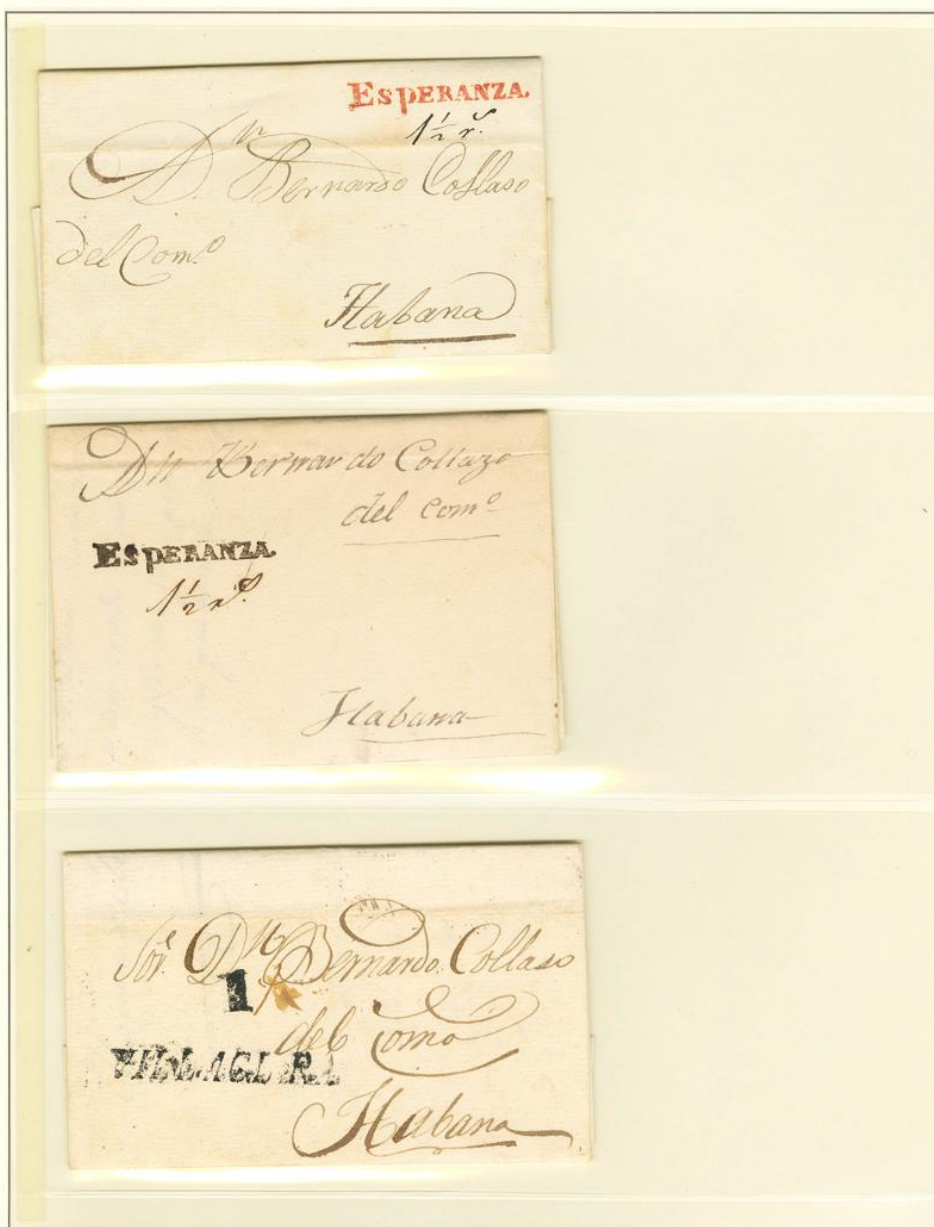 ESPERANZA.
1½ rs.
Dn. Bernardo Collaso
del Como.
Habana
Dn Bernardo Collazo
del Como
ESPERANZA.
1½ rs.
Habana
Sor. Dn. Bernardo Collaso
1
del Como
VILLACLARA
Habana